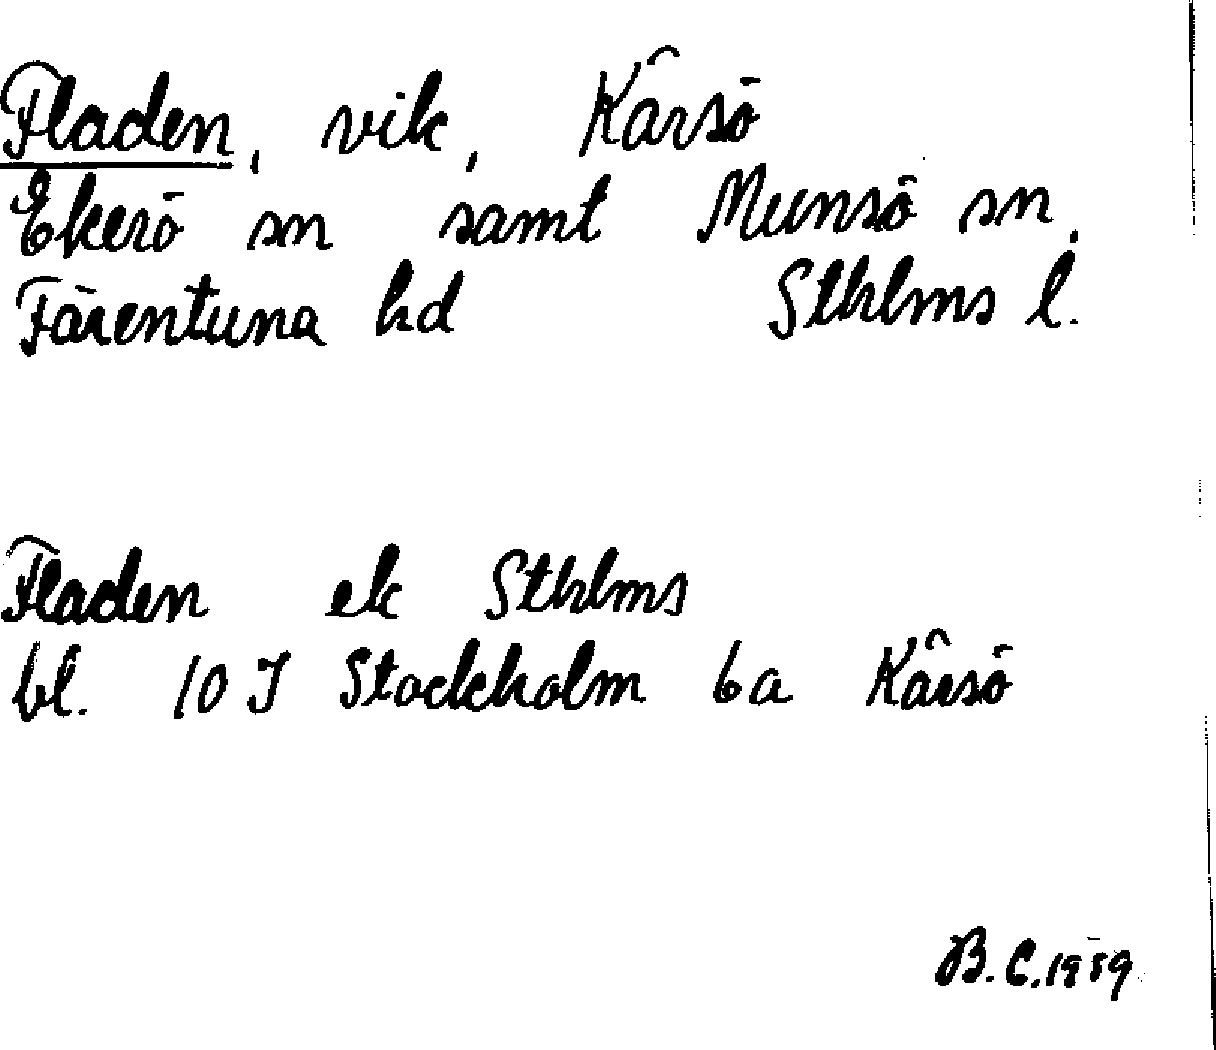 Fladen, vik, Kårsö
Ekerö sn samt Munsö sn.
Färentuna hd Sthlms l.
Fladen ek Sthlms
bl. 10 I Stockholm 6a Kårsö
B.C. 1959